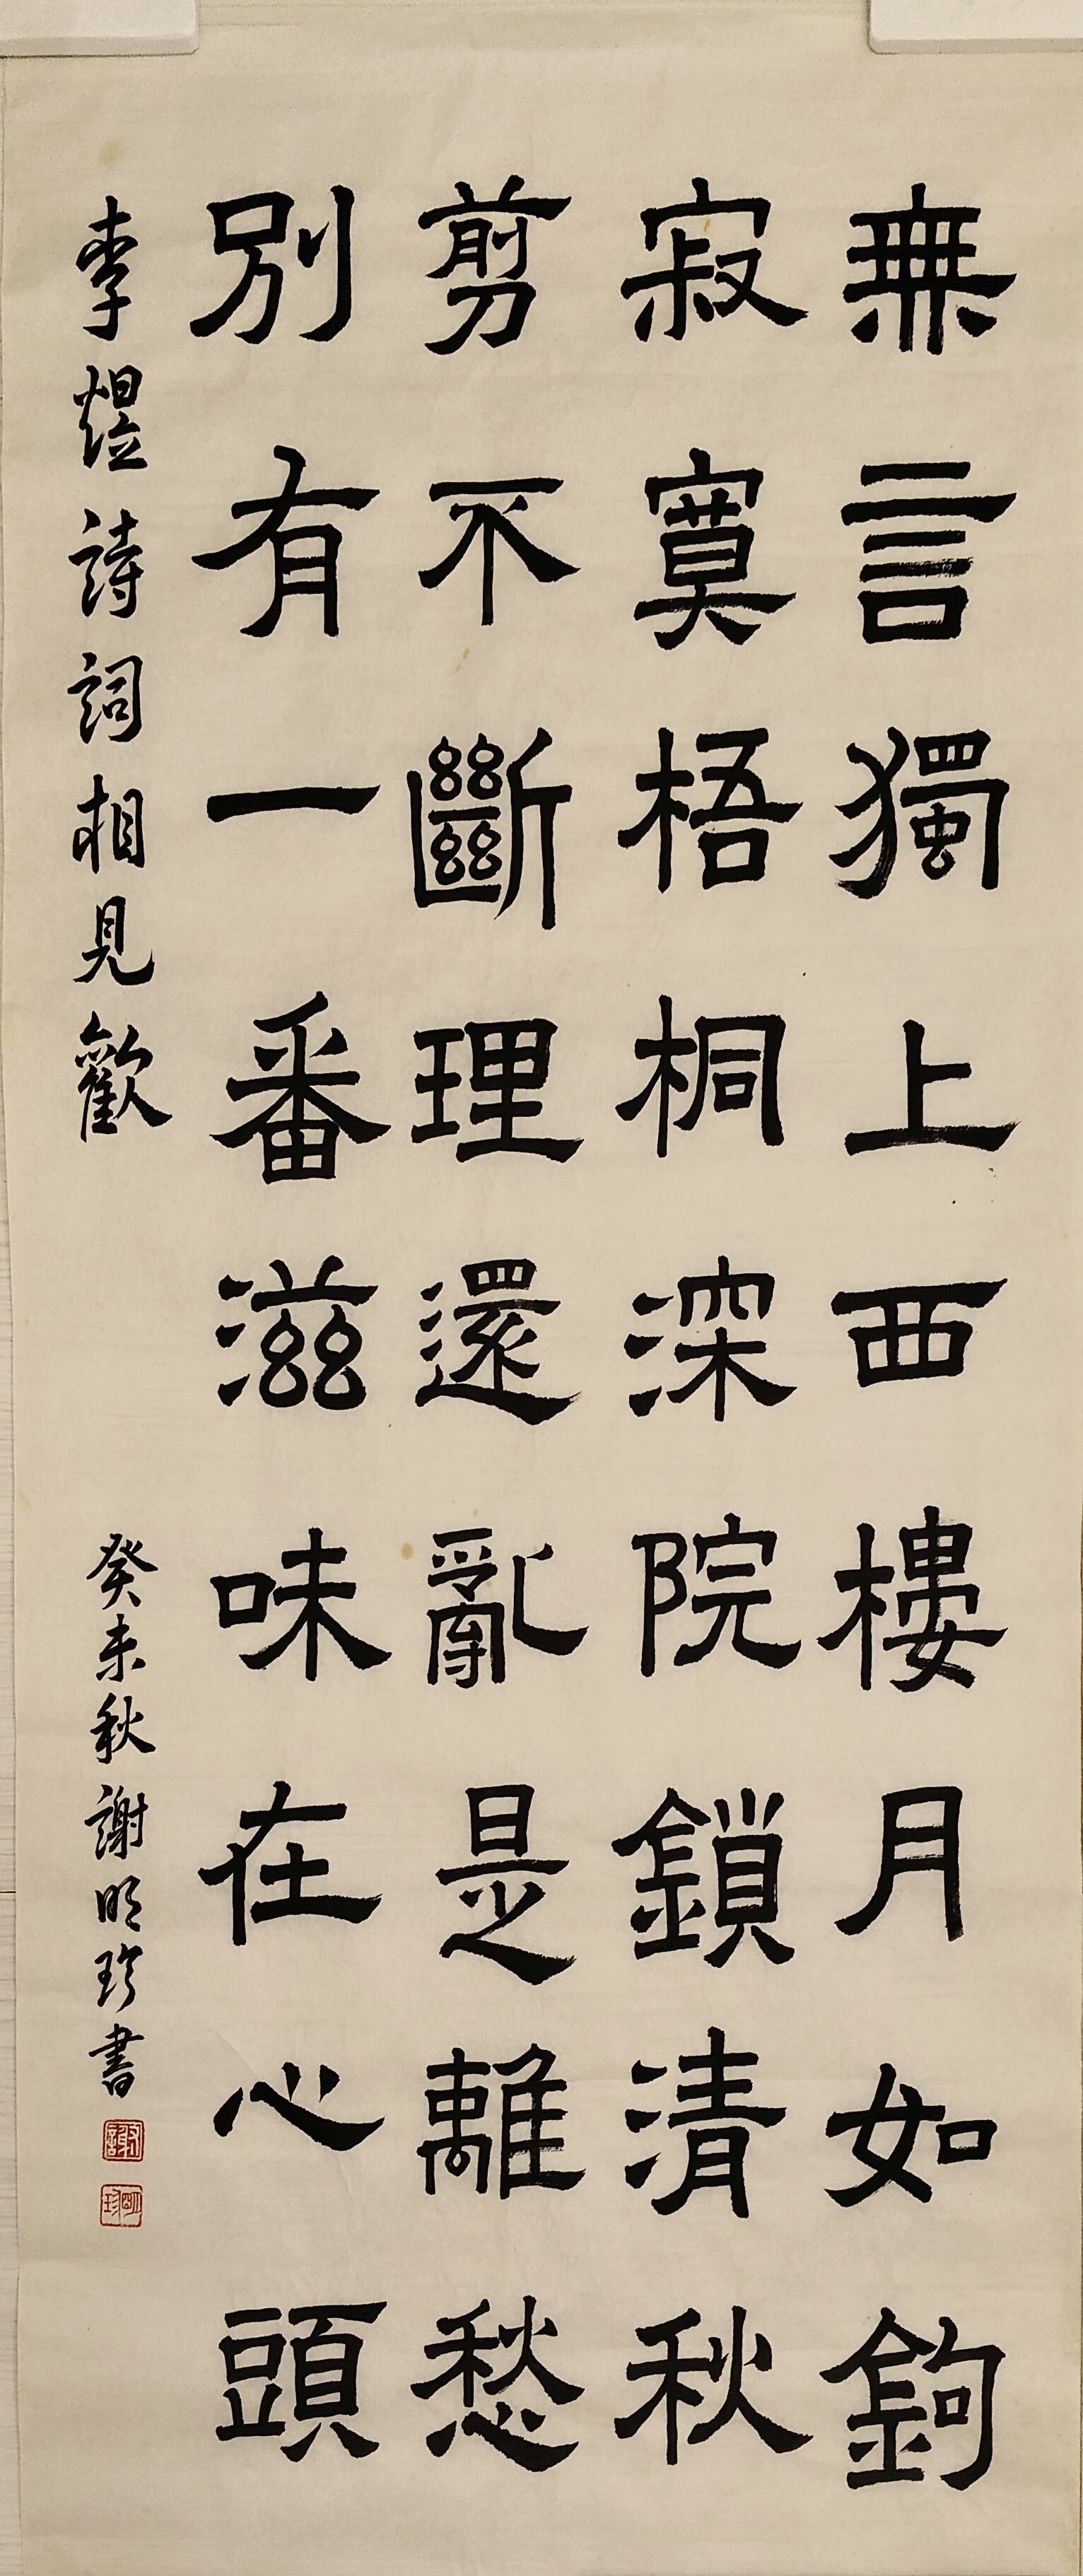 無言獨上西樓月如鉤
寂寞梧桐深院鎖清秋
剪不斷理還亂是離愁
別有一番滋味在心頭
李煜詩詞相見歡
癸未秋謝明珍書
謝
明珍